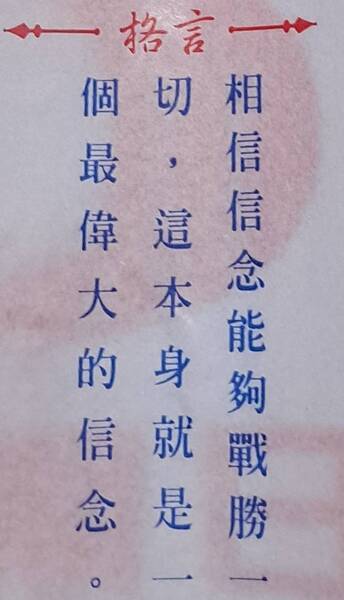 格言
相信信念能夠戰勝一
切，這本身就是一
個最偉大的信念。